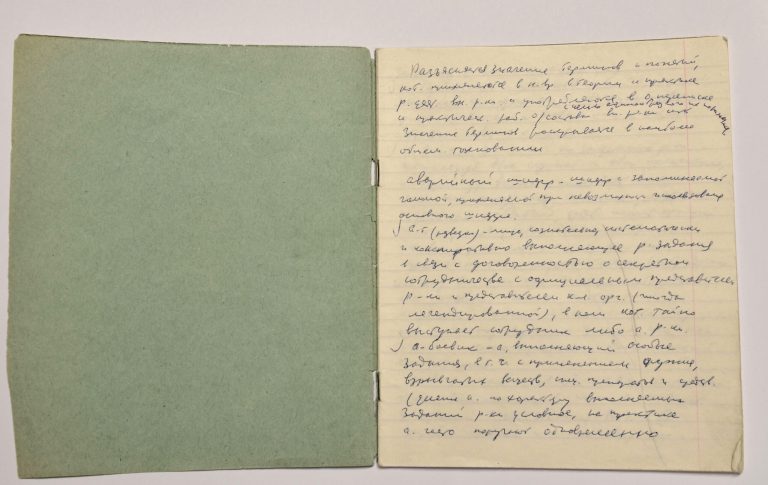 Разъясняется значение терминов и понятий,
кот. применяются в н. вр. в теории и практике
р. деят. вн. р-ки и употребляются в
и практическ. раб. о/состава вн. р-ки
Значение терминов раскрывается в наиболее
общем толковании
аварийный шифр - шифр с запоминаемой
гаммой, применяемой при невозможн. использования
основного шифра.
а-т (развед.) - лицо, сознательно, систематически
и конспиративно выполняющее р. задания
в связи с договоренностью о секретном
сотрудничестве с официальным представителем
р-ки и представителем к-л. орг. (иногда
легендированной), в кот. тайно
выступает сотрудник либо а. р-ки.
а-боевик - а., выполняющий особые
задания, в т. ч. с применением оружия,
взрывчатых веществ, спец. препаратов и средств.
(деление а. по характеру выполняемых
заданий р-ки условное, на практике
а. часто поручают одновременно